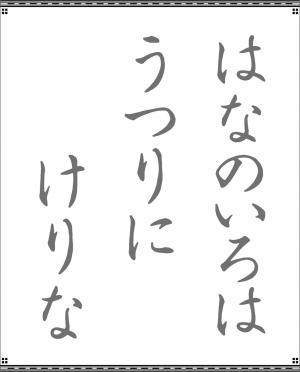 はなのいろは
うつりに
けりな